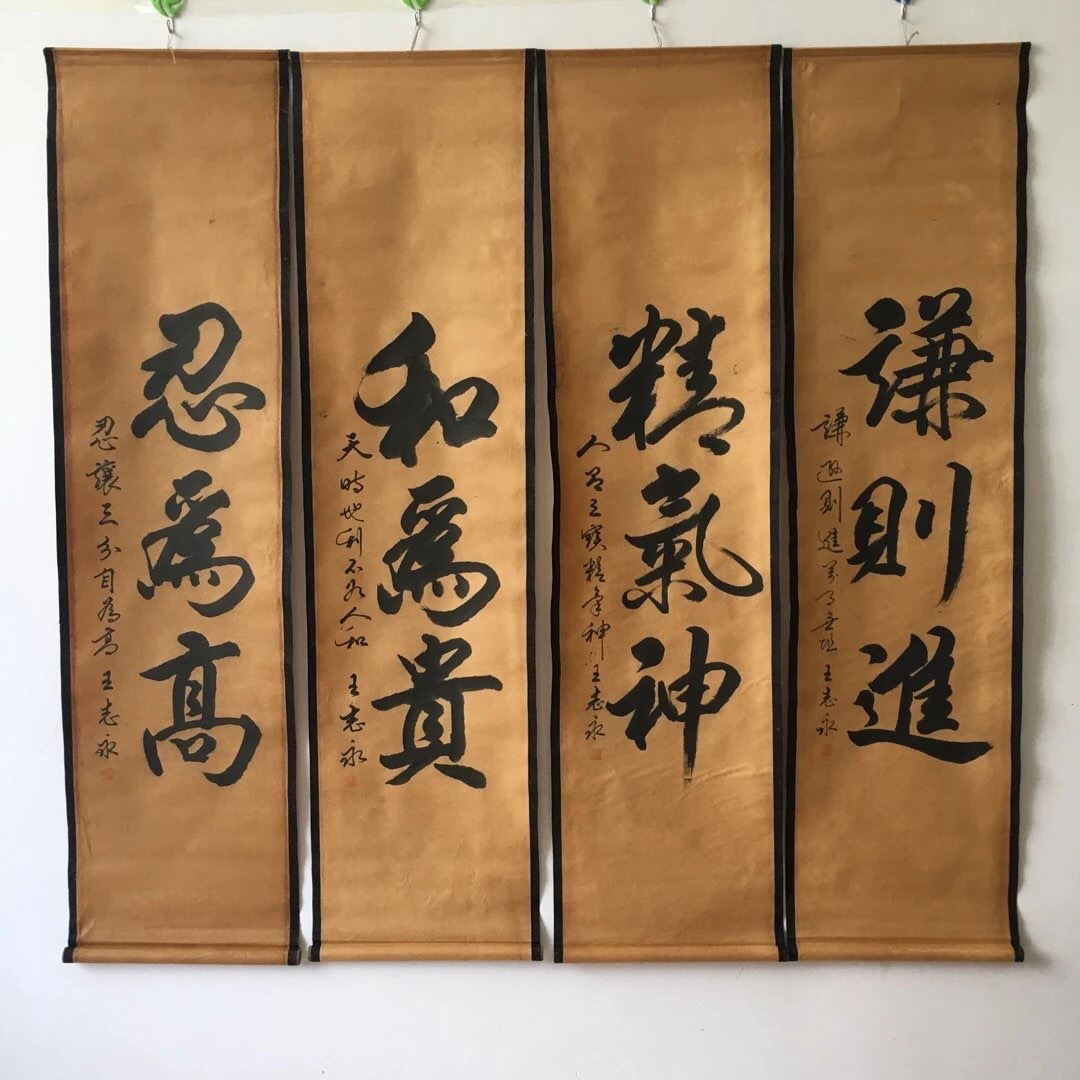 謙則進
謙遜則進萬事無阻 王志永
精氣神
人有三寶精氣神 王志永
和為貴
天時地利不如人和 王志永
忍為高
忍讓三分自為高 王志永